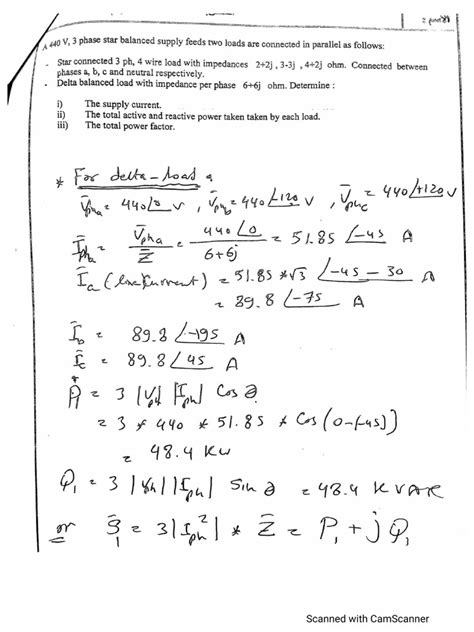 A 440 V, 3 phase star balanced supply feeds two loads are connected in parallel as follows:
Star connected 3 ph, 4 wire load with impedances 2+2j , 3-3j , 4+2j ohm. Connected between
phases a, b, c and neutral respectively.
Delta balanced load with impedance per phase 6+6j ohm. Determine :
i) The supply current.
ii) The total active and reactive power taken taken by each load.
iii) The total power factor.
* For delta-load
V̄pha = 440∠0 V , V̄phb = 440∠-120 V , V̄phc = 440∠+120 V
Īpha = V̄pha / Z̄ = 440∠0 / 6+6j = 51.85 ∠-45 A
Īa (line current) = 51.85 * √3 ∠-45 - 30
= 89.8 ∠-75 A
Īb = 89.8 ∠-195 A
Īc = 89.8 ∠45 A
P1 = 3 |Vph| |Iph| Cos θ
= 3 * 440 * 51.85 * Cos (0-(-45))
= 48.4 KW
Q1 = 3 |Vph| |Iph| Sin θ = 48.4 KVAR
or S̄1 = 3|Iph|² * Z̄ = P1 + j Q1
Scanned with CamScanner